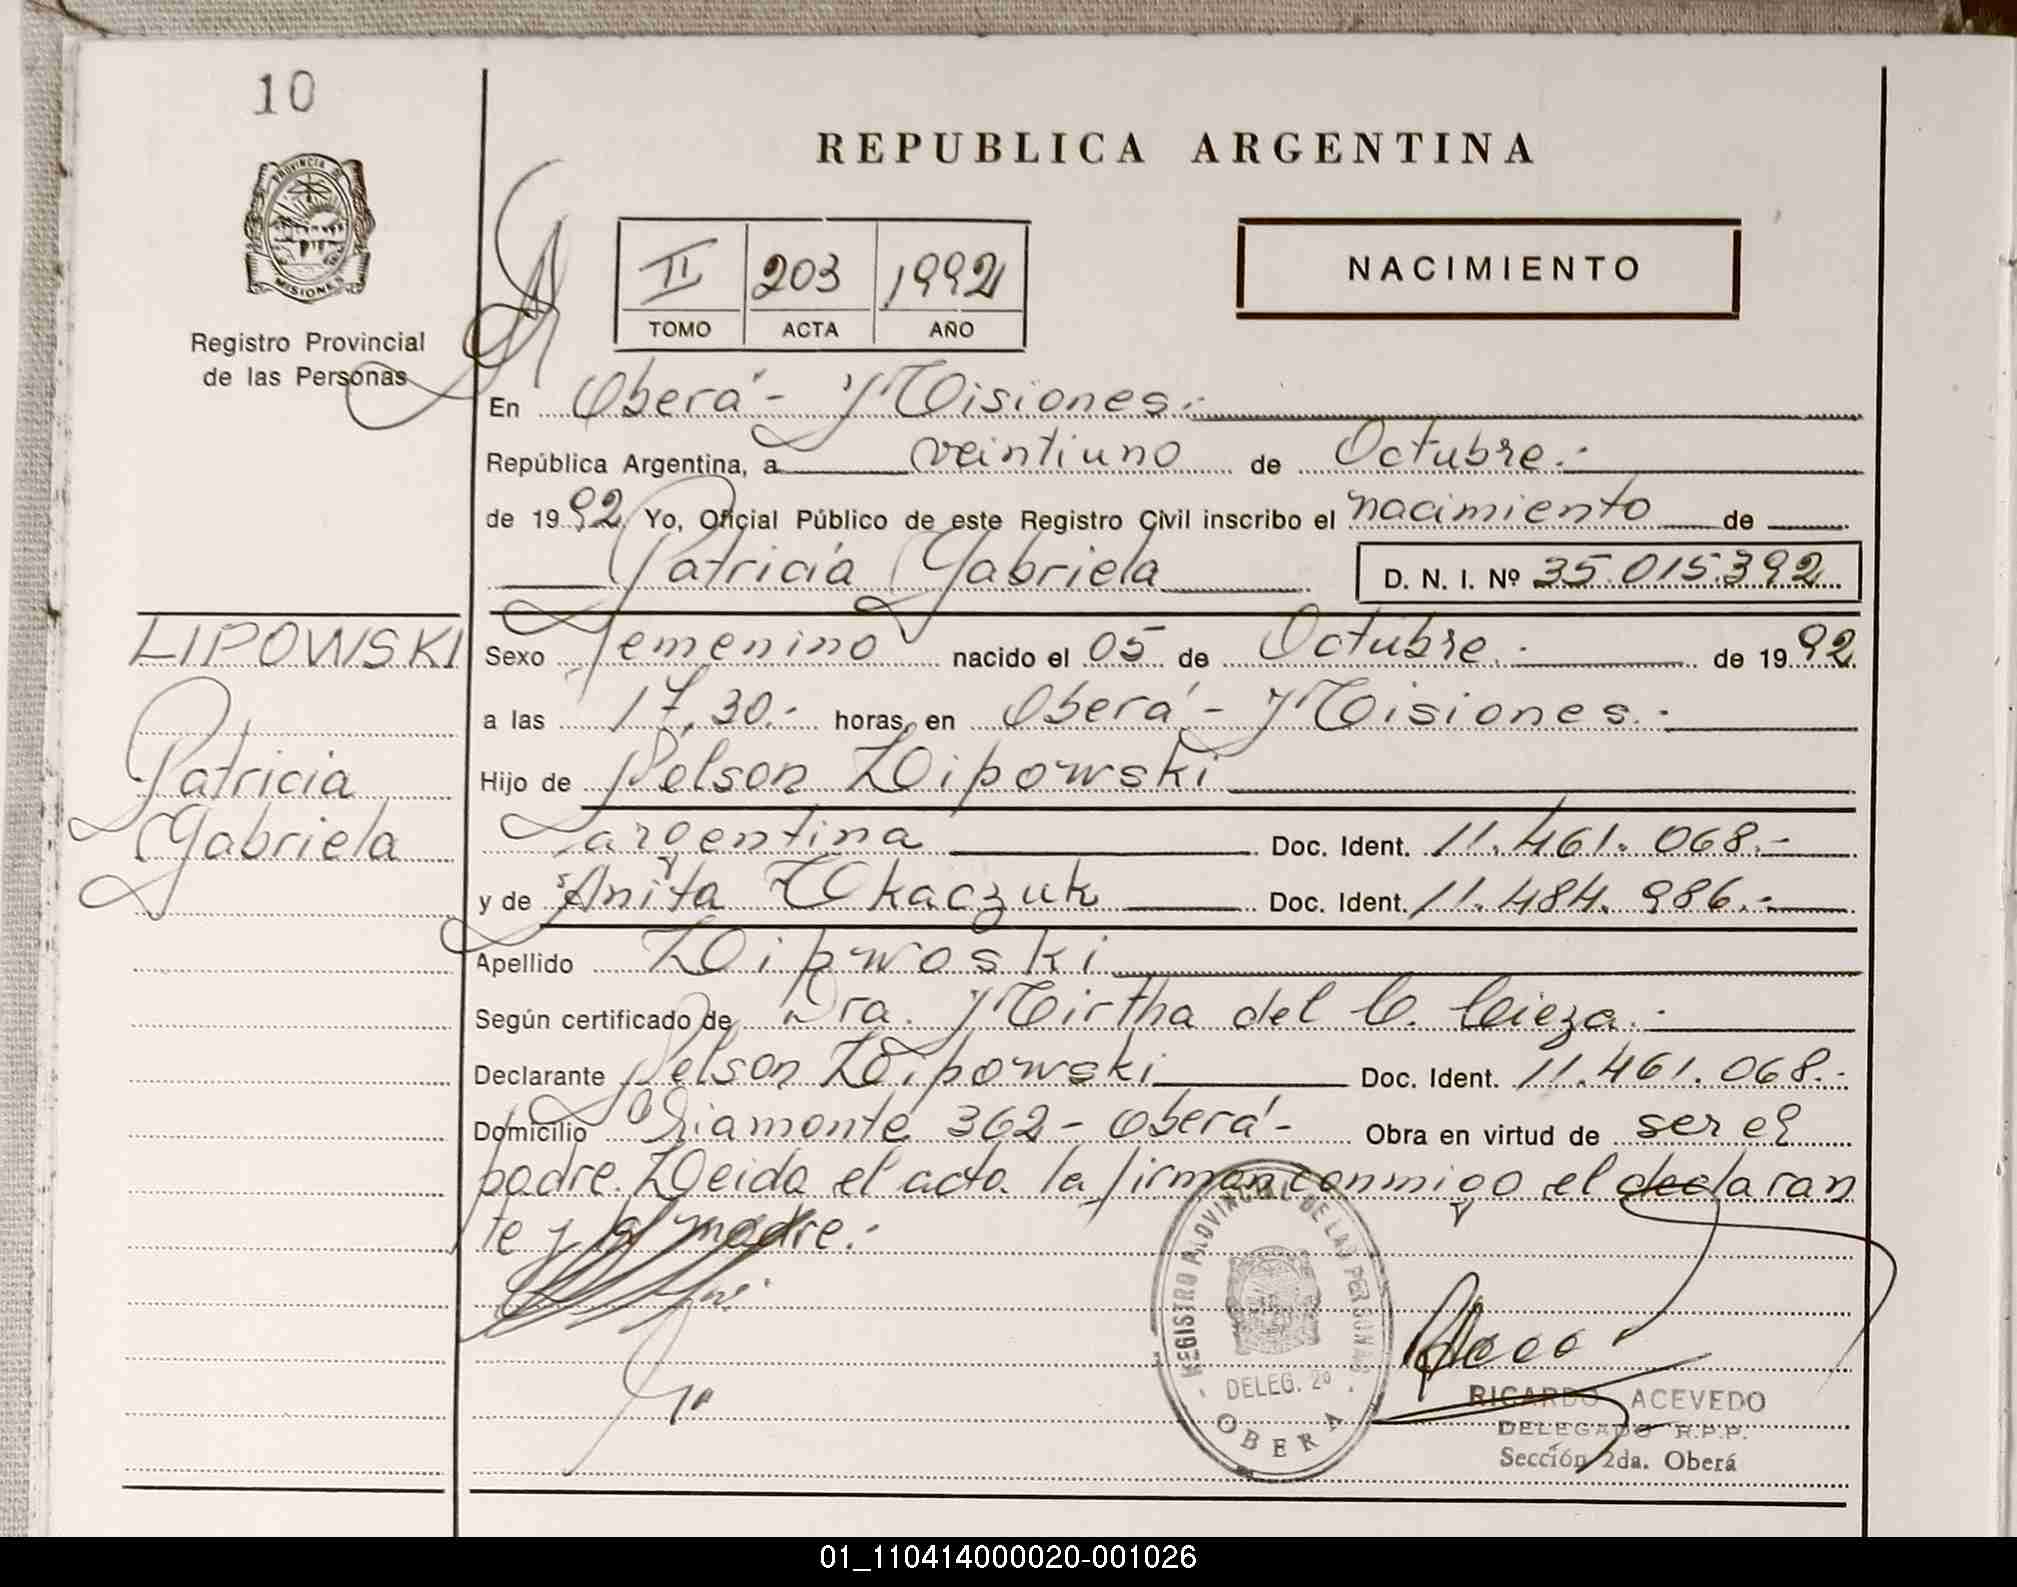 10
PROVINCIA DE
MISIONES
Registro Provincial
de las Personas
REPUBLICA ARGENTINA
II 203 1992
TOMO ACTA AÑO
NACIMIENTO
En Oberá - Misiones.-
República Argentina, a veintiuno de Octubre.-
de 1992 Yo, Oficial Público de este Registro Civil inscribo el nacimiento de
Patricia Gabriela D. N. I. Nº 35.015.392
LIPOWSKI
Patricia
Gabriela
Sexo Femenino nacido el 05 de Octubre.- de 1992.
a las 17,30.- horas, en Oberá - Misiones.-
Hijo de Nelson Lipowski
argentina Doc. Ident. 11.461.068.-
y de Anita Tkaczuk Doc. Ident. 11.484.986.-
Apellido Lipwoski
Según certificado de Dra. Mirtha del C. Cieza.-
Declarante Nelson Lipowski Doc. Ident. 11.461.068.-
Domicilio Diamante 362 - Oberá - Obra en virtud de ser el
padre. Leida el acta la firman conmigo el declaran
te y la madre.-
REGISTRO PROVINCIAL DE LAS PERSONAS
DELEG. 2º
OBERA
RICARDO ACEVEDO
DELEGADO R.P.P.
Sección 2da. Oberá
01_110414000020-001026